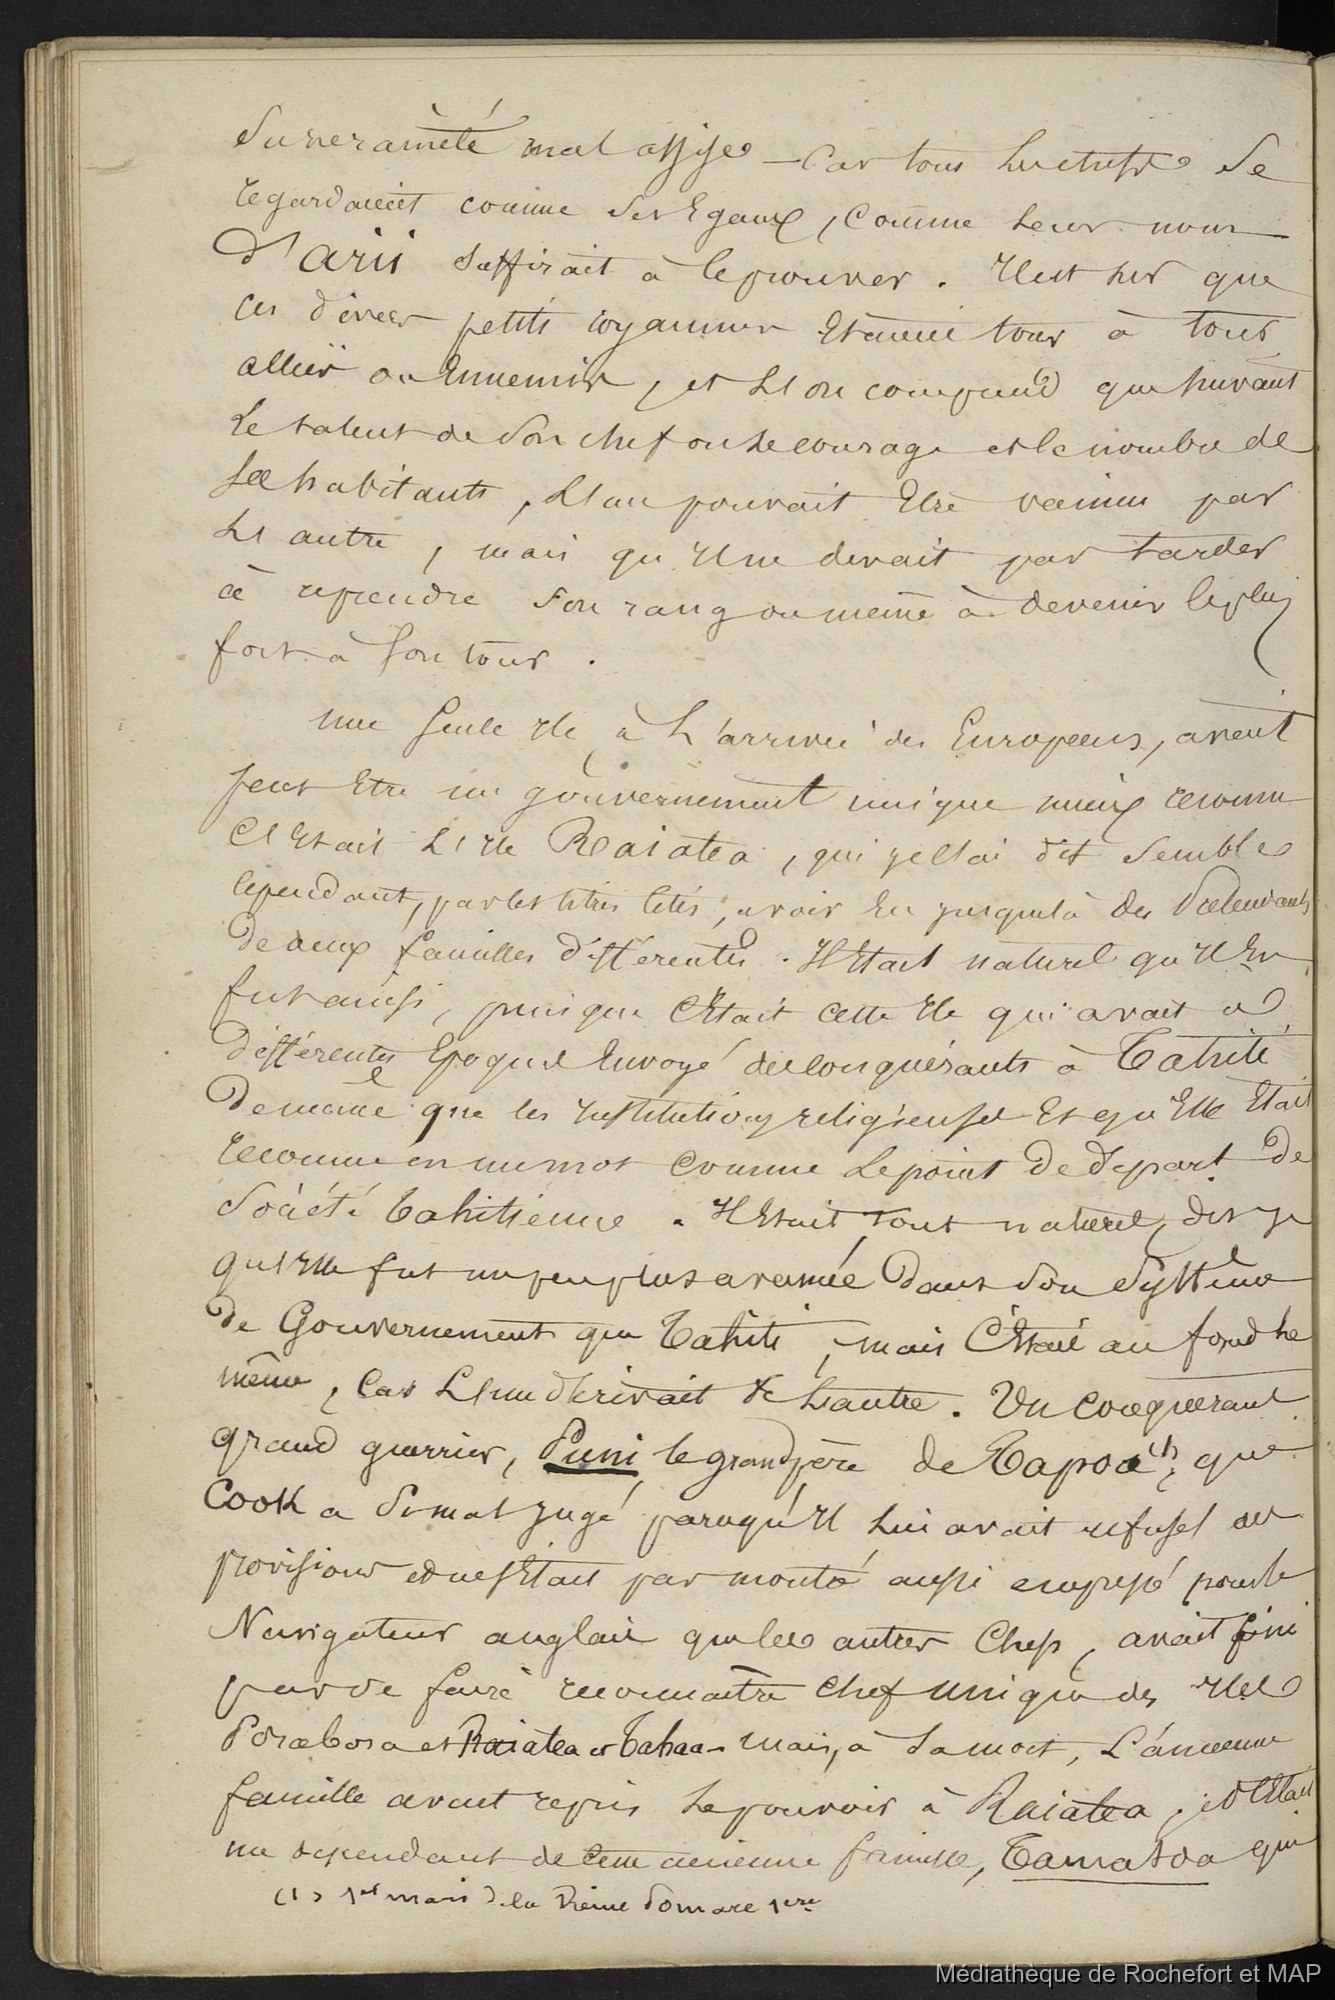 Suveraineté mal assise — Car tous les chefs se
regardaient comme ses Egaux, comme leur nom
d'arii suffirait à le prouver. Il est sûr que
ces divers petits royaumes Etaient tour à tour
alliés ou Ennemis, et l'on comprend que suivant
le talent de son chef ou le courage et le nombre de
ses habitants, l'un pouvait Etre vaincu par
l'autre, mais qu'il ne devait pas tarder
à reprendre son rang ou même à devenir le plus
fort à son tour.
une seule Ile, à l'arrivée des Européens, avait
peut Etre un gouvernement unique mieux reconnu
C'Etait l'Ile Raiatea, qui je l'ai dit semble
cependant, par les titres cités, avoir Eu jusque là des
de deux familles différentes. Il Etait naturel qu'il En
fut ainsi, puisque C'Etait cette Ile qui avait à
différentes Epoques Envoyé des conquérants à Tahiti
de même que les Institutions religieuses Et qu'Elle Etait
reconnue en un mot comme le point de départ de
Société tahitienne. Il Etait tout naturel, dis-je
qu'Elle fut un peu plus avancée dans son système
de Gouvernement que Tahiti, mais C'Etait au fond le
même, car l'un dérivait de l'autre. Un conquérant
grand guerrier, Puni le grand père de Tapoa (1), que
Cook a si mal jugé parcequ'il lui avait refusé des
provisions et ne s'Etait pas montré aussi empressé pour le
Navigateur anglais que les autres Chefs, avait fini
par se faire reconnaitre chef unique des Iles
Borabora et Raiatea et Tahaa - mais, à sa mort, l'ancienne
famille avait repris le pouvoir à Raiatea, et c'Etait
un descendant de cette ancienne famille, Tamatoa qui
(1) 1er mari de la Reine Pomare 1ere
Médiathèque de Rochefort et MAP